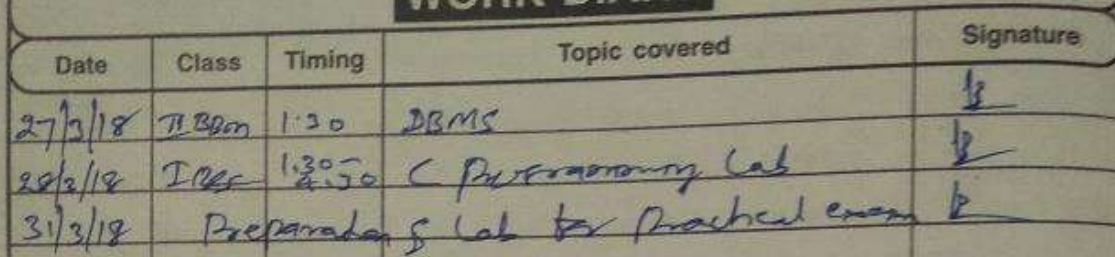 WORK DIARY
Date Class Timing Topic covered Signature
27/3/18 II BCom 1.30 DBMS
28/3/18 I BSc 1.30- 4.30 C Programming Lab
31/3/18 Preparation of Lab for Practical exam